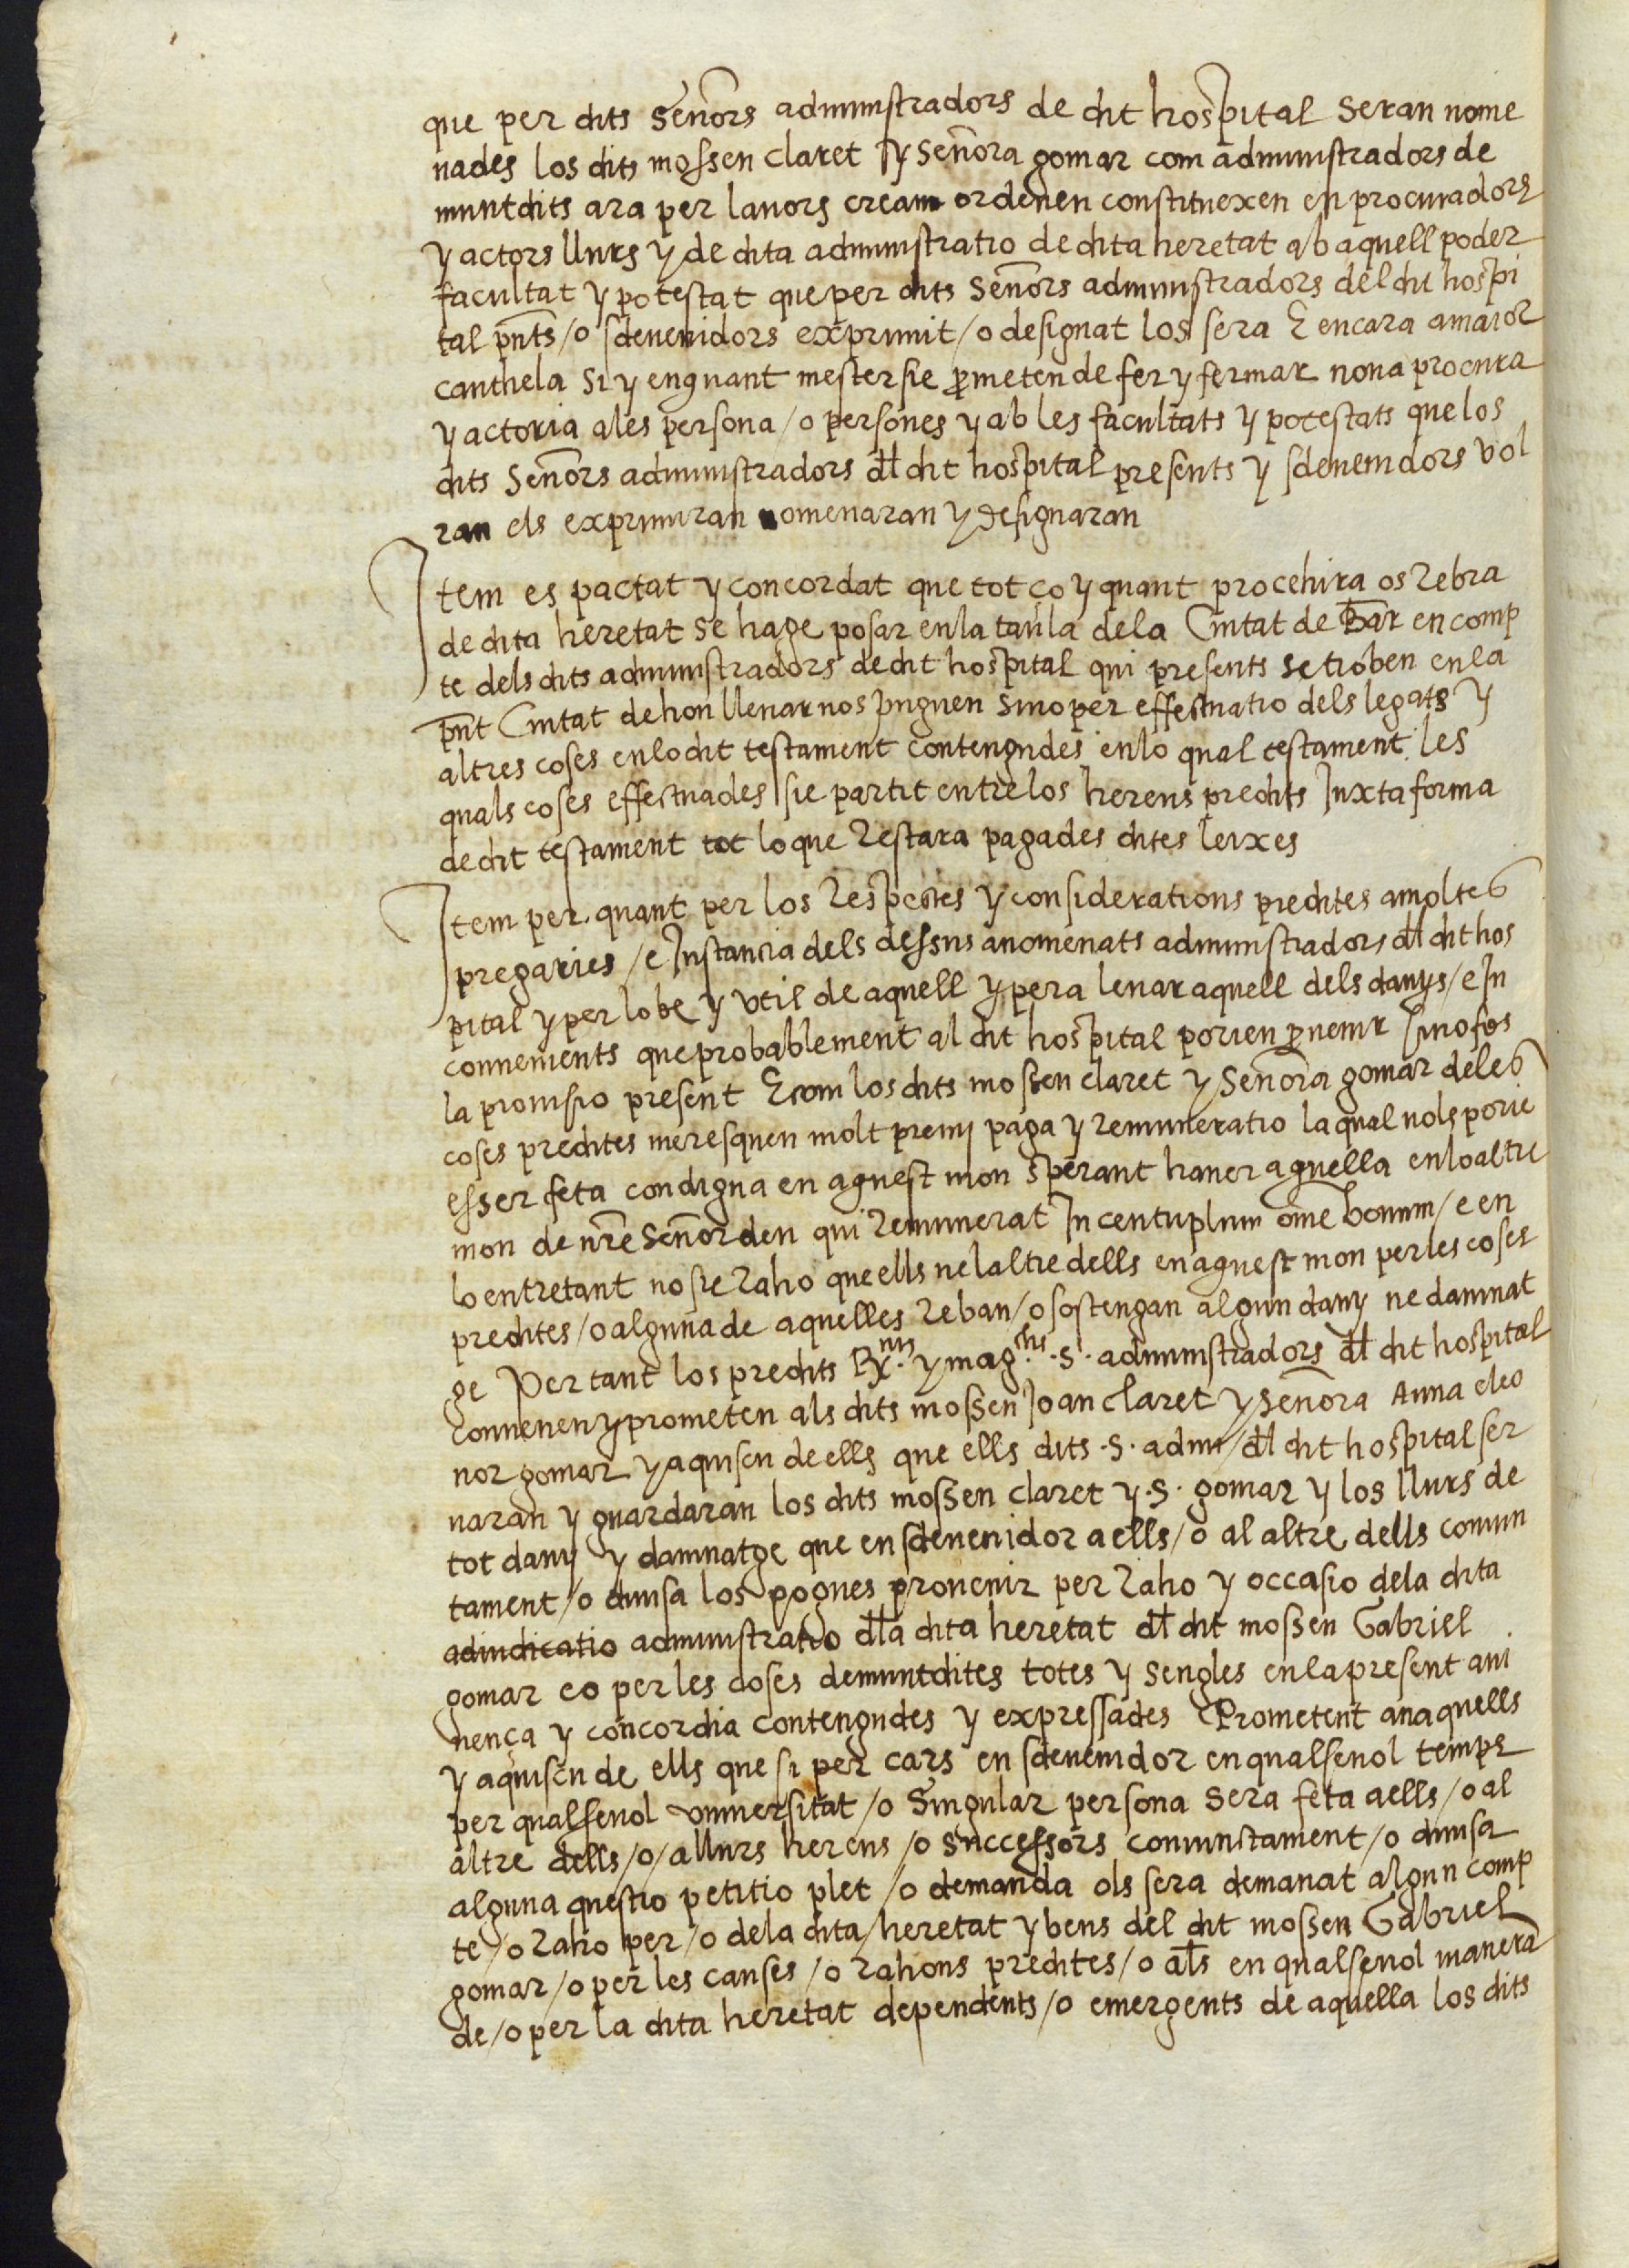 que per dits Senors administradors de dit hospital seran nome
nades los dits mossen claret Iy Senora gomar com administradors de
muntdits ara per lauors crean ordenen constituexen en procuradors
y actors llurs y de dita administratio de dita heretat ab aquell poder
facultat y potestat que per dits Senors administradors del dit hospi
tal pnts / o sdeuenidors exprimit / o designat los sera E encara a maior
cauthela si y enquant mester sie prometen de fer y fermar noua procura
y actoria ales persona / o persones y ab les facultats y potestats que los
dits Senors administradors dl dit hospital presents y sdeuenidors vol
ran els exprimiran nomenaran y designaran
Item es pactat y concordat que tot ço y quant procehira os rebra
de dita heretat se hage posar en la taula dela Ciutat de Bar en comp
te dels dits administradors de dit hospital qui presents se troben en la
pnt Ciutat de hon lleuar nos puguen sino per effectuatio dels legats y
altres coses en lo dit testament contengudes en lo qual testament les
quals coses effectuades sie partit entre los hereus predits Iuxta forma
de dit testament tot lo que restara pagades dites leixes
Item per quant per los respectes y considerations predites a moltes
pregaries / e Instancia dels dessus anomenats administradors dl dit hos
pital y per lo be y vtil de aquell y pera leuar aquell dels danys / e In
conuenients que probablement al dit hospital porien prouenir sino fos
la prouisio present E com los dits mossen claret y Senora gomar deles
coses predites meresquen molt premi paga y remuneratio la qual nols porie
esser feta condigna en aquest mon sperant hauer aquella en lo altre
mon de nre Senor deu qui remunerat In centuplum ome bonum / e en
lo entretant no sie raho que ells ne laltre dells en aquest mon per les coses
predites / o alguna de aquelles reban / o sostengan algun dany ne damnat
ge Per tant los predits Rx.nts y mag.chs .S. administradors dl dit hospital
conuenen y prometen als dits mossen Joan claret y senora Anna eleo
nor gomar y aquisen de ells que ells dits .S. admi / dl dit hospital ser
uaran y guardaran los dits mossen claret y .S. gomar y los llurs de
tot dany y damnatge que en sdeuenidor a ells / o al altre dells comun
tament / o diuisa los pognes prouenir per raho y occasio dela dita
adiudicatio administratio dla dita heretat dl dit mossen Gabriel
gomar eo per les coses demuntdites totes y sengles en la present aui
nença y concordia contengudes y expressades Prometent an aquells
y aquisen de ells que si per cars en sdeuenidor en qualseuol temps
per qualseuol vniuersitat / o Singular persona sera feta a ells / o al
altre dells / o / a llurs hereus / o successors coniunctament / o diuisa
alguna questio petitio plet / o demanda ols sera demanat algun comp
te / o raho per / o dela dita heretat y bens del dit mossen Gabriel
gomar / o per les causes / o rahons predites / o als en qualseuol manera
de / o per la dita heretat dependents / o emergents de aquella los dits